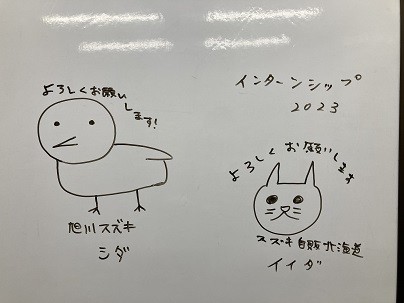 よろしくお願いします!
旭川スズキ
シダ
インターンシップ
2023
よろしくお願いします
スズキ自販北海道
イイダ